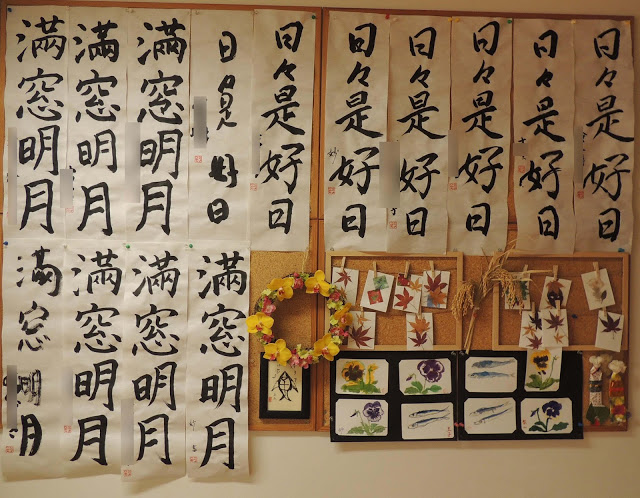 日々是好日
日々是好日
日々是好日
日々是好日
日々是好日
日々是好日
日々是好日
満窓明月
満窓明月
満窓明月
満窓明月
満窓明月
満窓明月
満窓明月